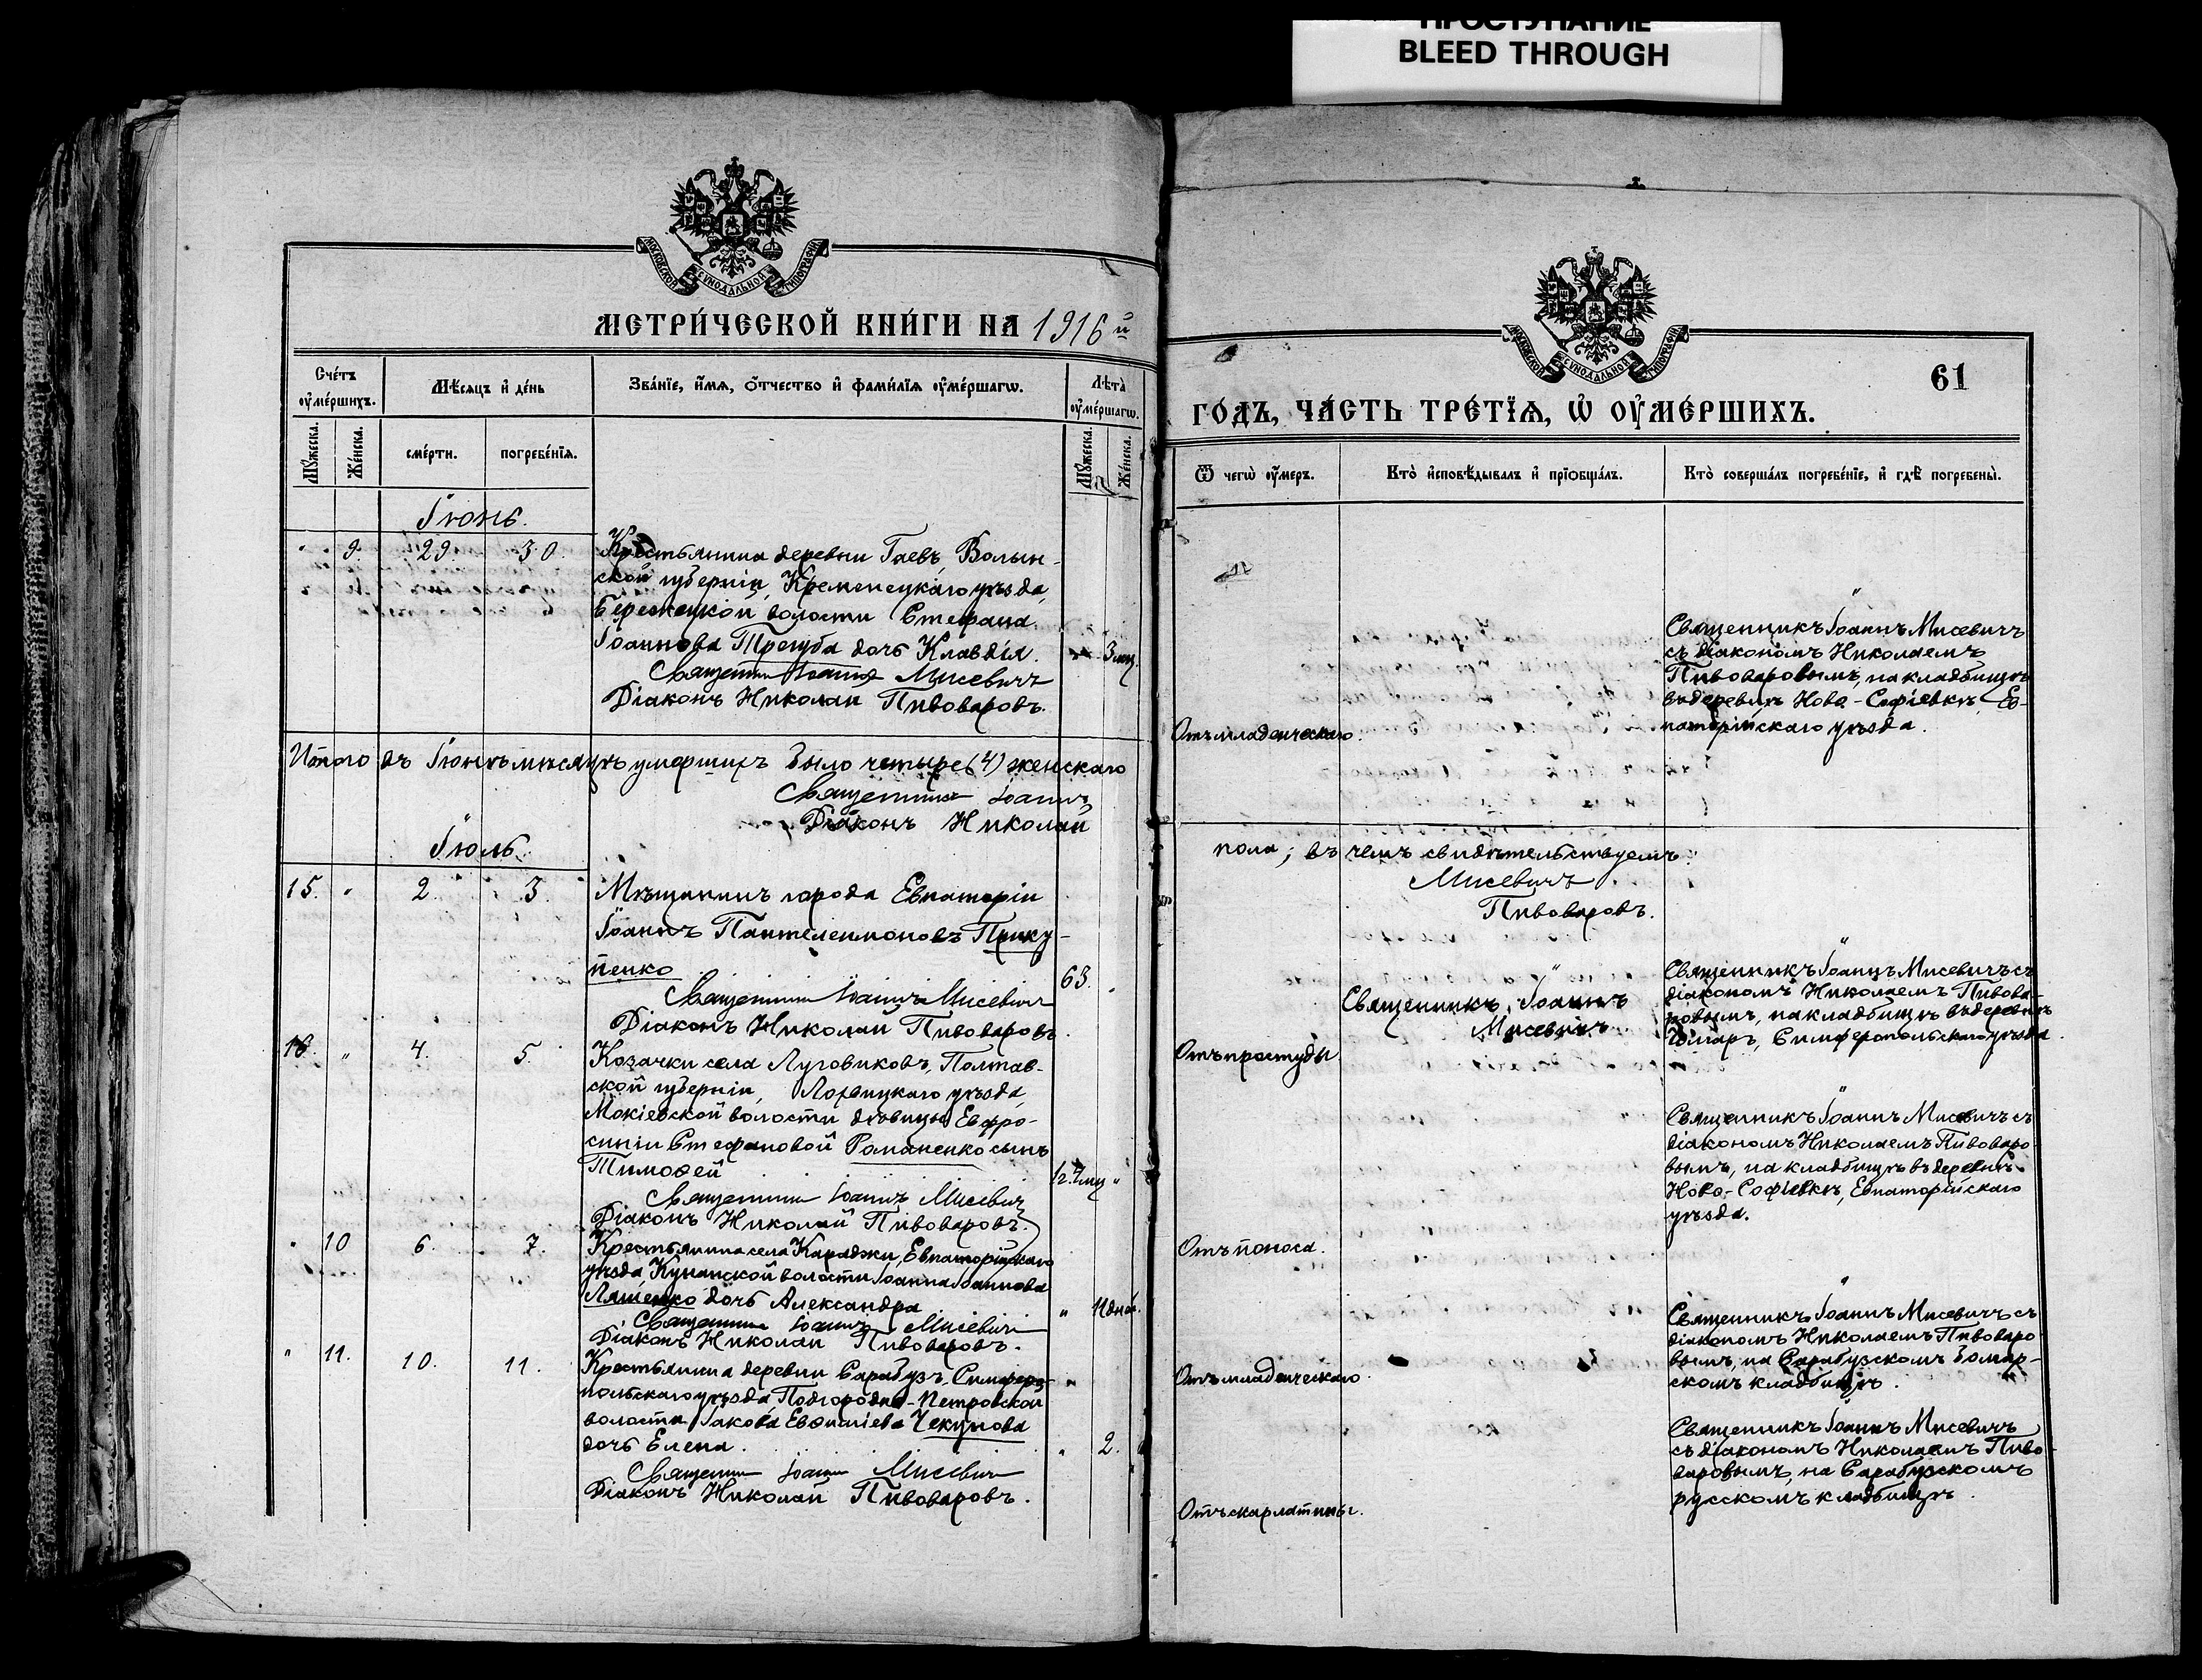 ПРОСТУПАНИЕ
BLEED THROUGH
МОСКОВСКОЙ СѴНОДАЛЬНОЙ ТИПОГРАФІИ
МЕТРИ́ЧЕСКОЙ КНИ́ГИ НА 1916й
Сче́тъ ᲂу҆ме́ршихъ.
Мѣ́сяцъ и҆ де́нь
Зва́нїе, и҆́мя, ѻ҆́тчество и҆ фами́лїя ᲂу҆ме́ршагѡ.
Лѣта̀ ᲂу҆ме́ршагѡ.
Мꙋ́жеска.
Же́нска.
сме́рти.
погребе́нїя.
Мꙋ́жеска.
Же́нска.
Іюнь.
" 9. 29 30.
Крестьянина деревни Гаевъ, Волын-
ской губерніи, Кременецкаго уѣзда,
Бережецкой волости Стефана
Іоаннова Трегуба дочь Клавдія.
3 мц.
Священникъ Іоаннъ Мисевичъ
Діаконъ Николай Пивоваровъ.
Итого въ Іюнѣ мѣсяцѣ умершихъ было четыре (4) женскаго
Священникъ Іоаннъ
Діаконъ Николай
Іюль.
15. " 2. 3.
Мѣщанинъ города Евпаторіи
Іоаннъ Пантелеимоновъ Прику-
пенко
63. "
Священникъ Іоаннъ Мисевичъ
Діаконъ Николай Пивоваровъ.
16. " 4. 5.
Козачки села Луговиковъ, Полтав-
ской губерніи, Лохвицкаго уѣзда,
Мокіевской волости дѣвицы Евфро-
синіи Стефановой Романенко сынъ
Тимоѳей
"
Священникъ Іоаннъ Мисевичъ
Діаконъ Николай Пивоваровъ.
" 10 6. 7.
Крестьянина села Караджи, Евпаторійскаго
уѣзда, Кунанской волости Іоанна Іоаннова
Ляшенко дочь Александра
" 11 дней.
Священникъ Іоаннъ Мисевичъ
Діаконъ Николай Пивоваровъ.
" 11. 10. 11.
Крестьянина деревни Сарабузъ, Симферо-
польскаго уѣзда, Подгородне-Петровской
волости Іакова Евѳиміева Чекунова
дочь Елена.
" 2.
Священникъ Іоаннъ Мисевичъ
Діаконъ Николай Пивоваровъ.
МОСКОВСКОЙ СѴНОДАЛЬНОЙ ТИПОГРАФІИ
61
ГО́ДЪ, ЧА́СТЬ ТРЕ́ТЇЯ, Ѡ҆ ОУ҆МЕ́РШИХЪ.
Ѿ чегѡ̀ ᲂу҆́меръ.
Кто̀ и҆сповѣ́дывалъ и҆ прїѻбща́лъ.
Кто̀ соверша́лъ погребе́нїе, и҆ гдѣ̀ погребены̀.
"
Священникъ Іоаннъ Мисевичъ
съ діакономъ Николаемъ
Пивоваровымъ, на кладбищѣ
въ деревнѣ Ново-Софіевкѣ, Ев-
паторійскаго уѣзда.
Отъ младенческаго.
пола; въ чемъ свидѣтельствуемъ:
Мисевичъ
Пивоваровъ.
"
Священникъ Іоаннъ
Мисевичъ.
Отъ простуды
"
Священникъ Іоаннъ Мисевичъ съ
діакономъ Николаемъ Пивова-
ровымъ, на кладбищѣ въ деревнѣ
Симферопольскаго уѣзда.
"
Священникъ Іоаннъ Мисевичъ съ
діакономъ Николаемъ Пивоваро-
вымъ, на кладбищѣ въ деревнѣ
Ново-Софіевкѣ, Евпаторійскаго
уѣзда.
Отъ поноса.
"
Священникъ Іоаннъ Мисевичъ съ
діакономъ Николаемъ Пивоваро-
вымъ, на Сарабузскомъ
скомъ кладбищѣ.
Отъ младенческаго.
Священникъ Іоаннъ Мисевичъ
съ діакономъ Николаемъ Пиво-
варовымъ, на Сарабузскомъ
русскомъ кладбищѣ.
Отъ скарлатины.